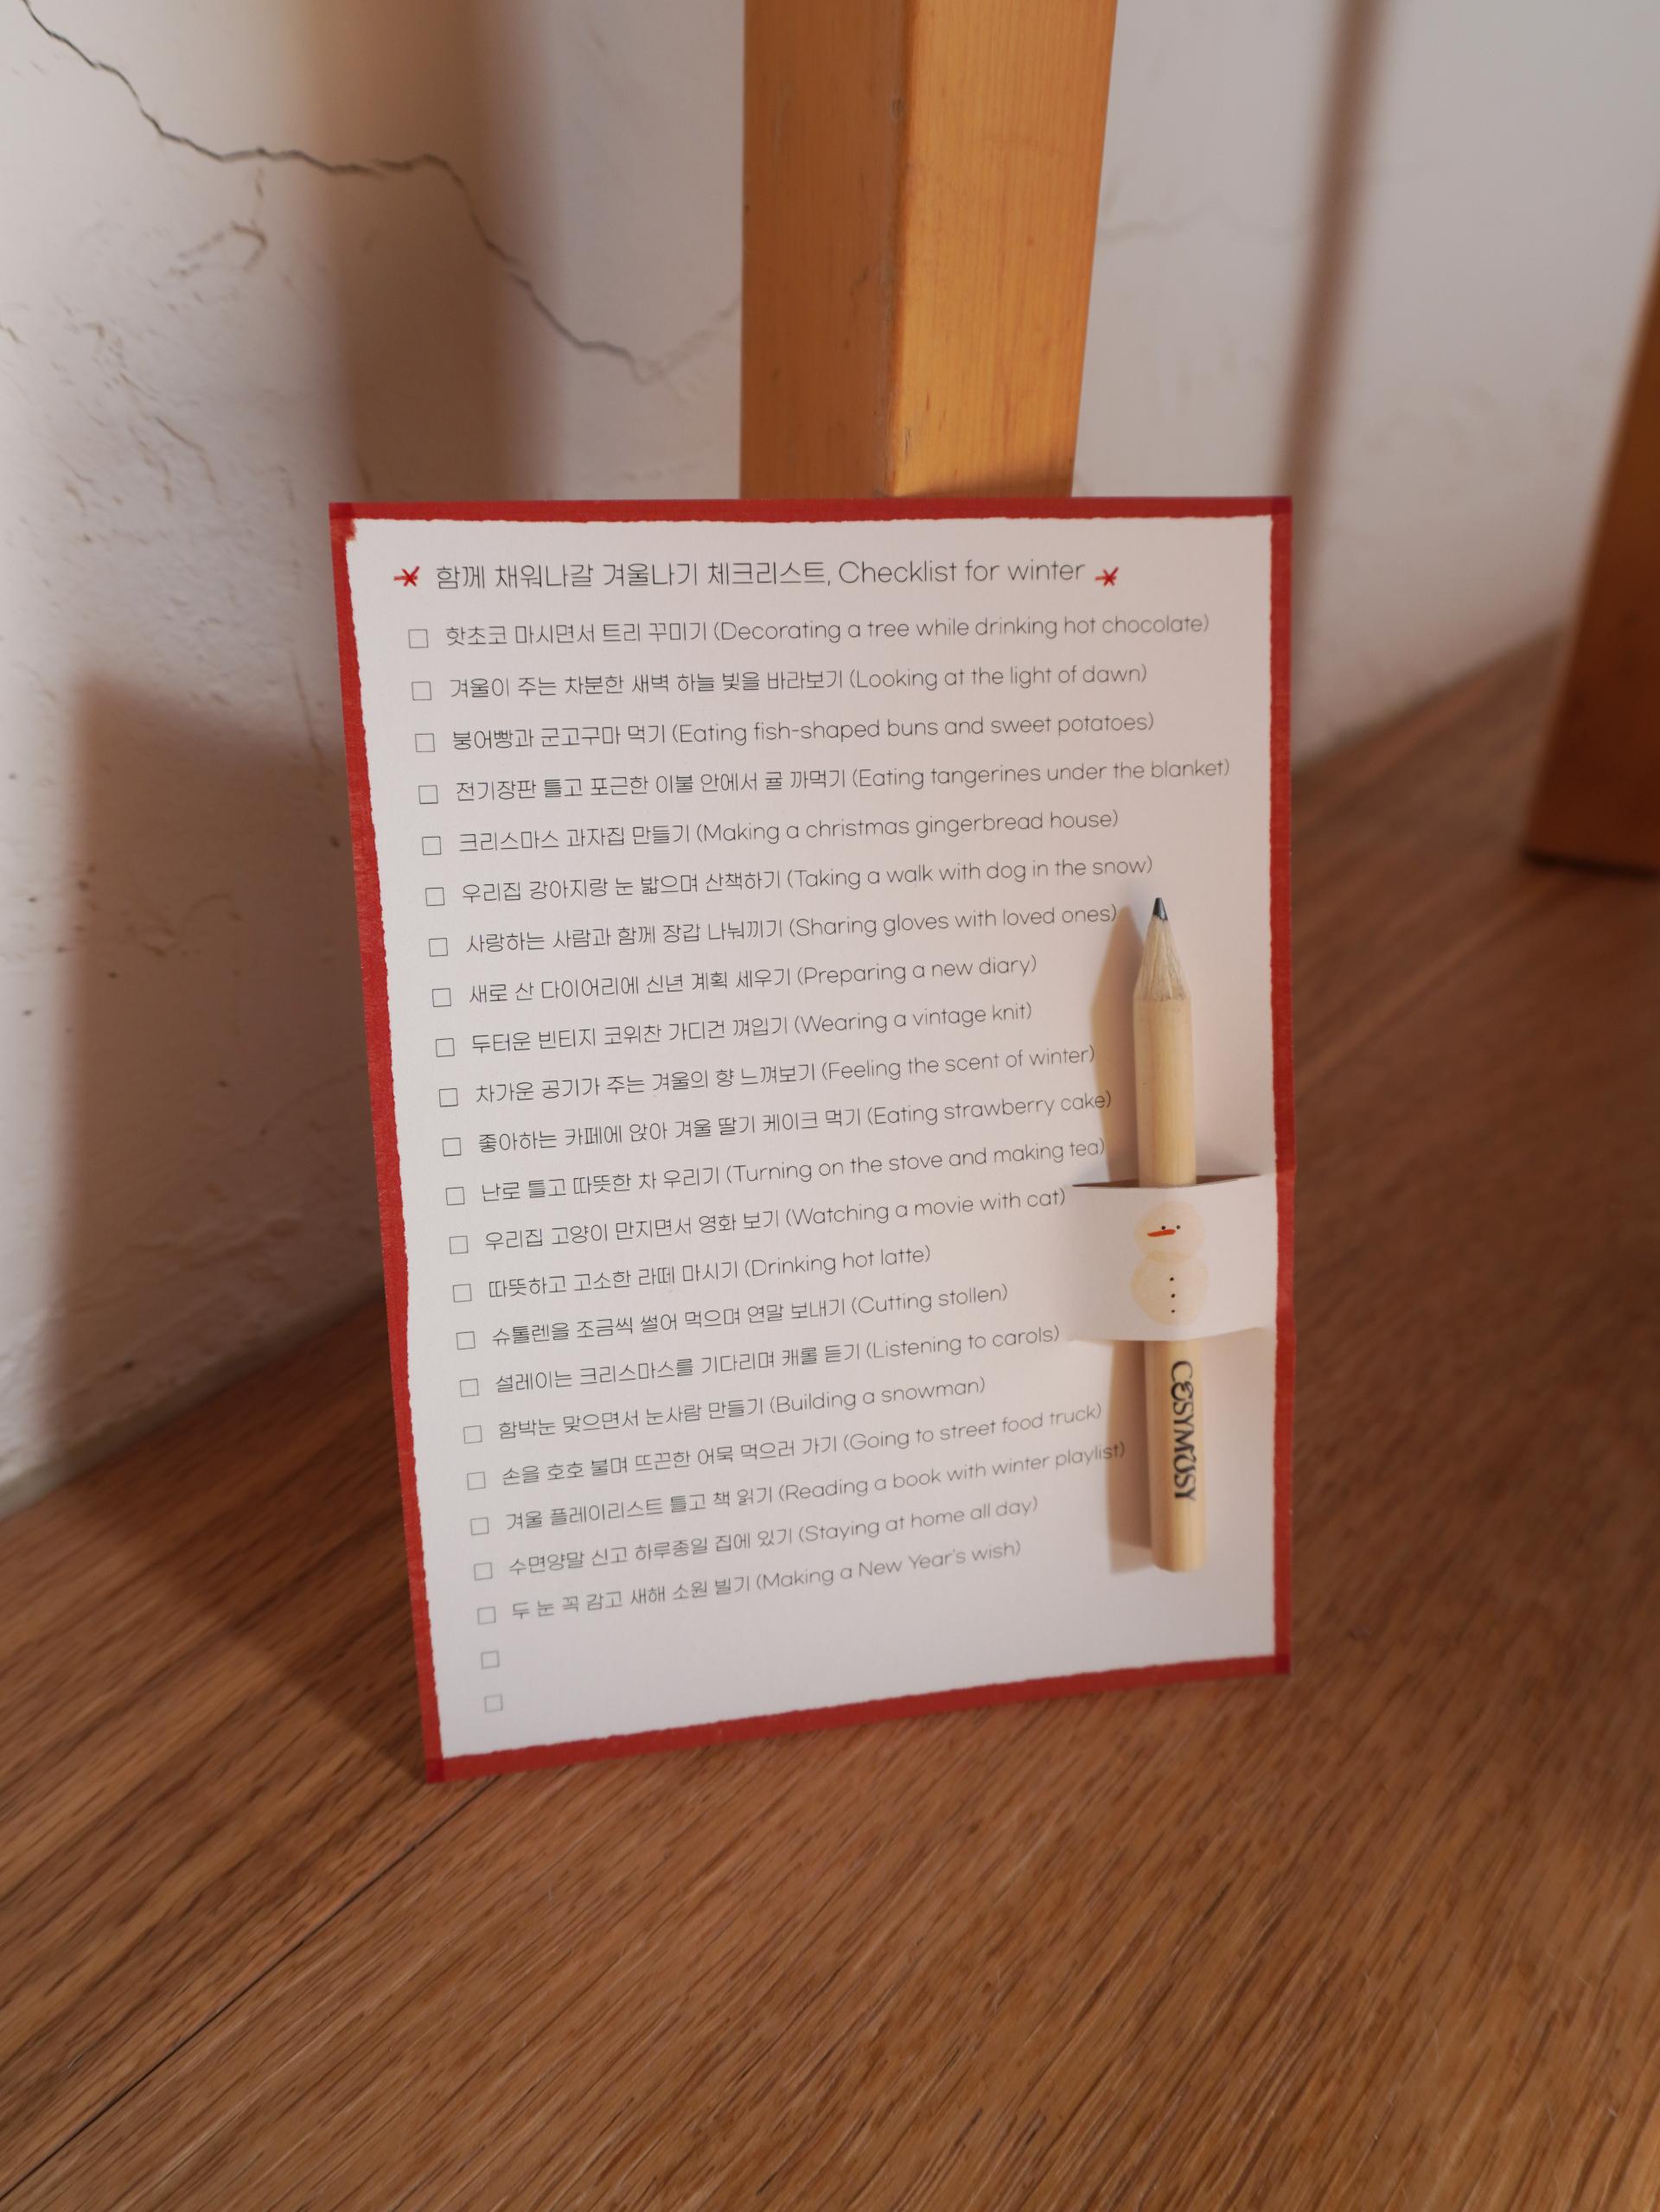 함께 채워나갈 겨울나기 체크리스트, Checklist for winter
핫초코 마시면서 트리 꾸미기 (Decorating a tree while drinking hot chocolate)
겨울이 주는 차분한 새벽 하늘 빛을 바라보기 (Looking at the light of dawn)
붕어빵과 군고구마 먹기 (Eating fish-shaped buns and sweet potatoes)
전기장판 틀고 포근한 이불 안에서 귤 까먹기 (Eating tangerines under the blanket)
크리스마스 과자집 만들기 (Making a christmas gingerbread house)
우리집 강아지랑 눈 밟으며 산책하기 (Taking a walk with dog in the snow)
사랑하는 사람과 함께 장갑 나눠끼기 (Sharing gloves with loved ones)
새로 산 다이어리에 신년 계획 세우기 (Preparing a new diary)
두터운 빈티지 코위찬 가디건 껴입기 (Wearing a vintage knit)
차가운 공기가 주는 겨울의 향 느껴보기 (Feeling the scent of winter)
좋아하는 카페에 앉아 겨울 딸기 케이크 먹기 (Eating strawberry cake)
난로 틀고 따뜻한 차 우리기 (Turning on the stove and making tea)
우리집 고양이 만지면서 영화 보기 (Watching a movie with cat)
따뜻하고 고소한 라떼 마시기 (Drinking hot latte)
슈톨렌을 조금씩 썰어 먹으며 연말 보내기 (Cutting stollen)
설레이는 크리스마스를 기다리며 캐롤 듣기 (Listening to carols)
함박눈 맞으면서 눈사람 만들기 (Building a snowman)
손을 호호 불며 뜨끈한 어묵 먹으러 가기 (Going to street food truck)
겨울 플레이리스트 틀고 책 읽기 (Reading a book with winter playlist)
수면양말 신고 하루종일 집에 있기 (Staying at home all day)
두 눈 꼭 감고 새해 소원 빌기 (Making a New Year's wish)
CESYMUSY